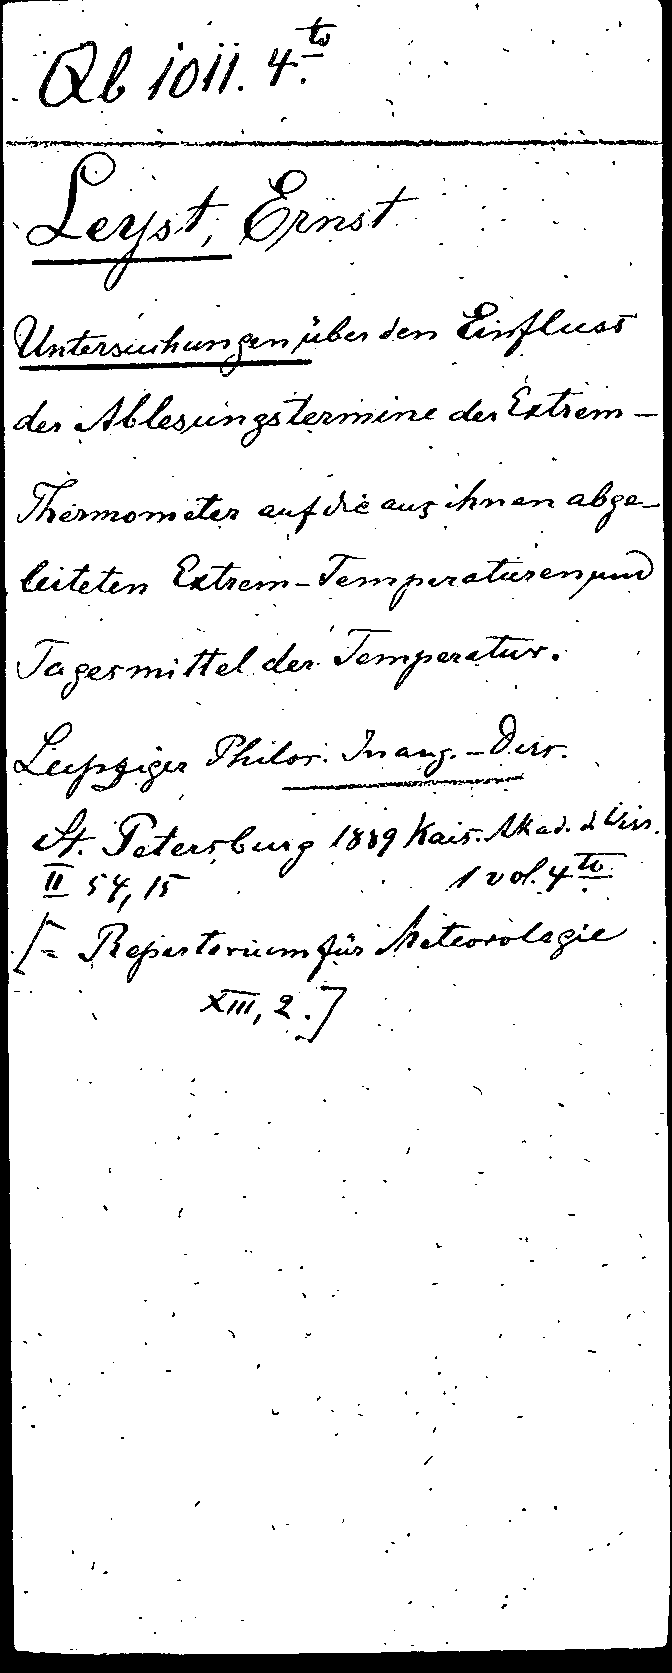 Qb 1011. 4.to
Leyst, Ernst
Untersuchungen über den Einfluss
der Ablesungstermine der Extrem-
Thermometer auf die aus ihnen abge-
leiteten Extrem-Temperaturen und
Tagesmittel der Temperatur.
Leipziger Philos. Inaug.-Diss.
St. Petersburg 1889 Kais. Akad. d. Wiss.
II 54, 15 1 vol. 4to
[= Repertorium für Meteorologie
XIII, 2.]